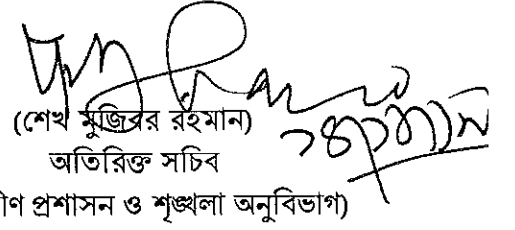 (শেখ মুজিবর রহমান)
অতিরিক্ত সচিব
ণ প্রশাসন ও শৃঙ্খলা অনুবিভাগ)